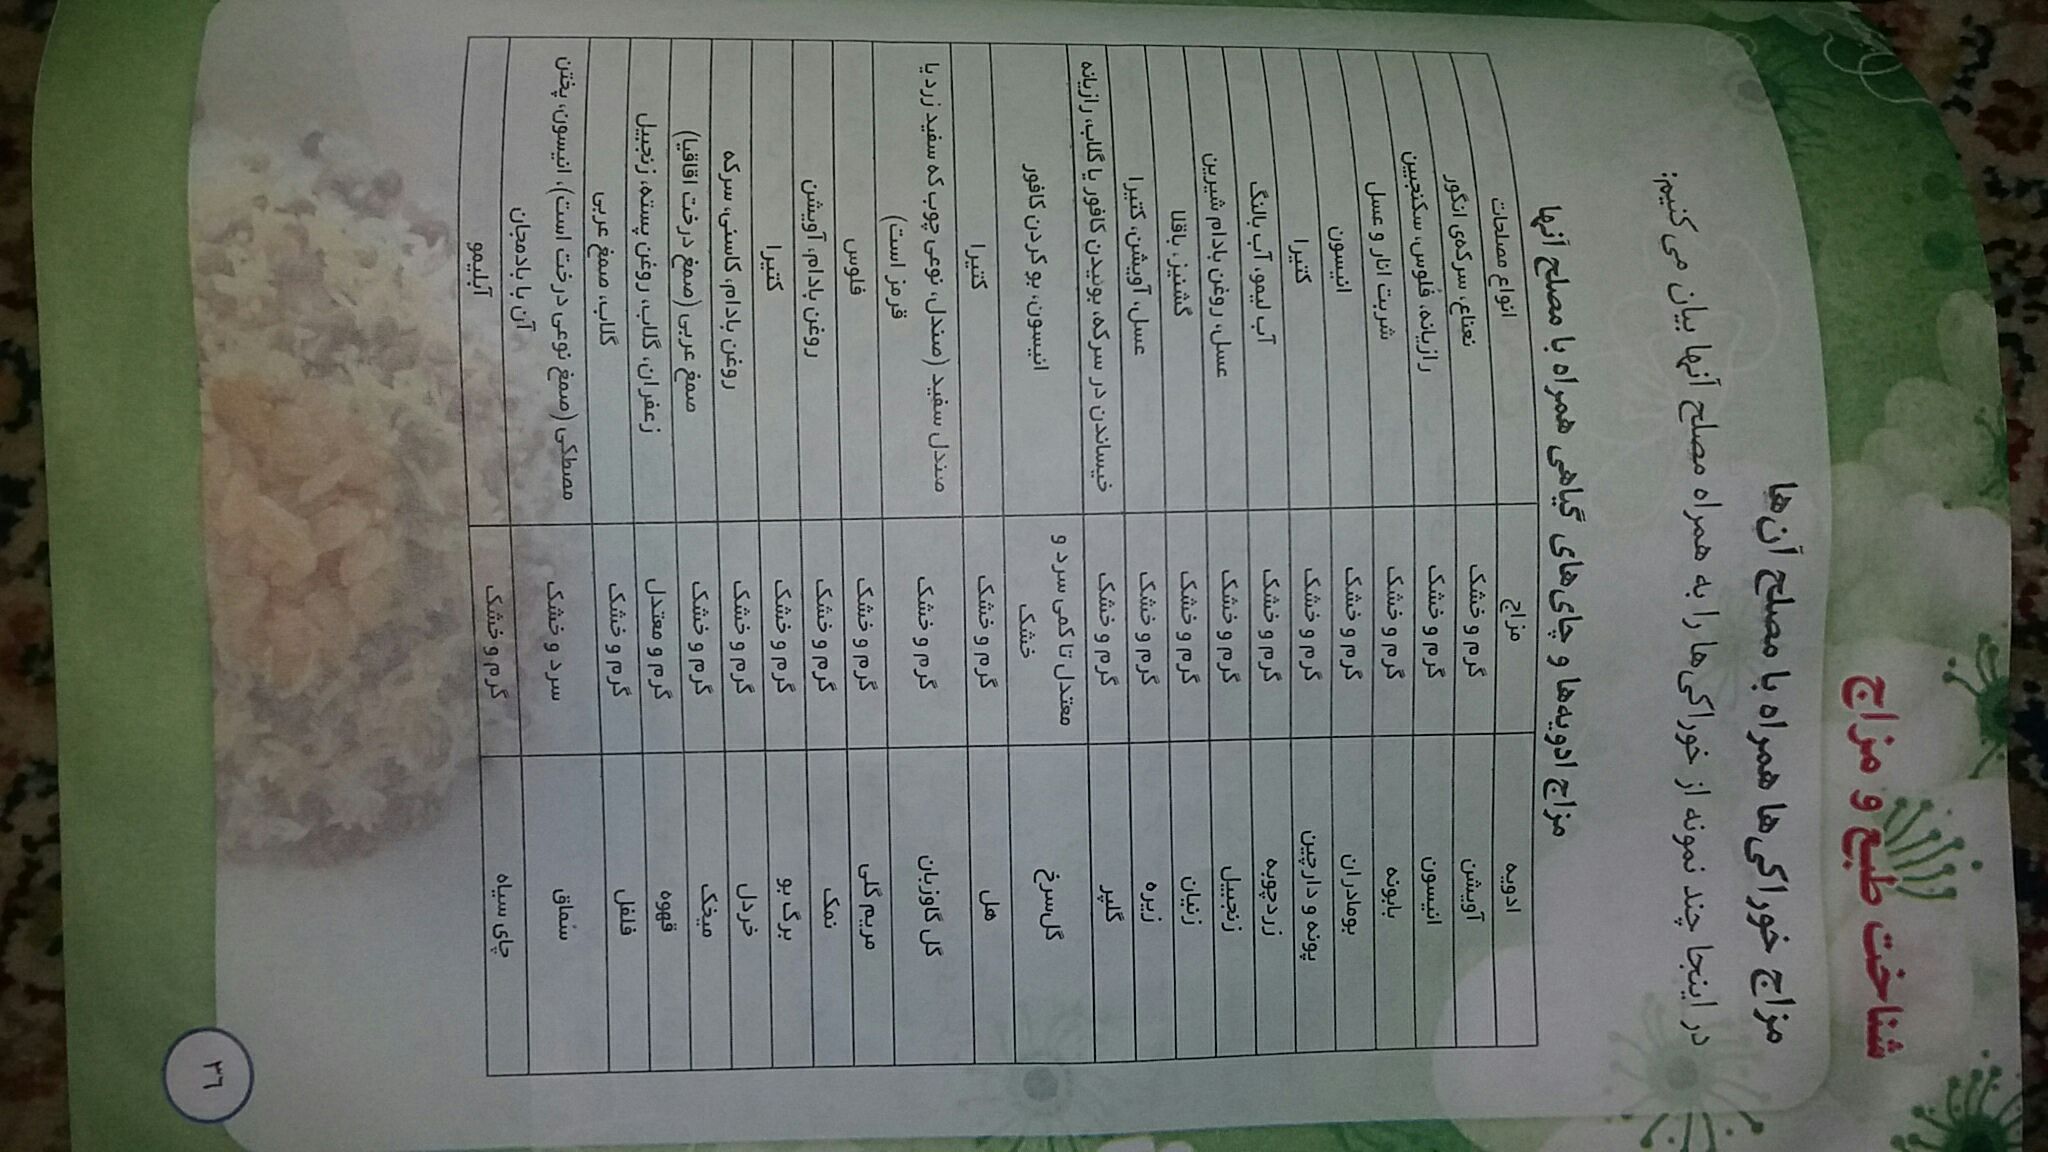 شناخت طبع و مزاج
مزاج خوراکی‌ها همراه با مصلح آن‌ها
در اینجا چند نمونه از خوراکی‌ها را به همراه مصلح آنها بیان می‌کنیم:
مزاج ادویه‌ها و چای‌های گیاهی همراه با مصلح آنها
ادویه مزاج انواع مصلحات
آویشن گرم و خشک نعناع، سرکه‌ی انگور
انیسون گرم و خشک رازیانه، فلوس، سکنجبین
بابونه گرم و خشک شربت انار و عسل
بومادران گرم و خشک انیسون
پونه و دارچین گرم و خشک کتیرا
زردچوبه گرم و خشک آب لیمو، آب بالنگ
زنجبیل گرم و خشک عسل، روغن بادام شیرین
زنیان گرم و خشک گشنیز، باقلا
زیره گرم و خشک عسل، آویشن، کتیرا
گلپر گرم و خشک خیساندن در سرکه، بوئیدن کافور یا گلاب، رازیانه
گل سرخ معتدل تا کمی سرد و
خشک
انیسون، بو کردن کافور
هل گرم و خشک کتیرا
گل گاوزبان گرم و خشک صندل سفید (صندل، نوعی چوب که سفید زرد یا
قرمز است)
مریم گلی گرم و خشک فلوس
نمک گرم و خشک روغن بادام، آویشن
برگ بو گرم و خشک کتیرا
خردل گرم و خشک روغن بادام، کاسنی، سرکه
میخک گرم و خشک صمغ عربی (صمغ درخت اقاقیا)
قهوه گرم و معتدل زعفران، گلاب، روغن پسته، زنجبیل
فلفل گرم و خشک گلاب، صمغ عربی
سُماق سرد و خشک مصطکی (صمغ نوعی درخت است)، انیسون، پختن
آن با بادمجان
چای سیاه گرم و خشک آبلیمو
۳۶